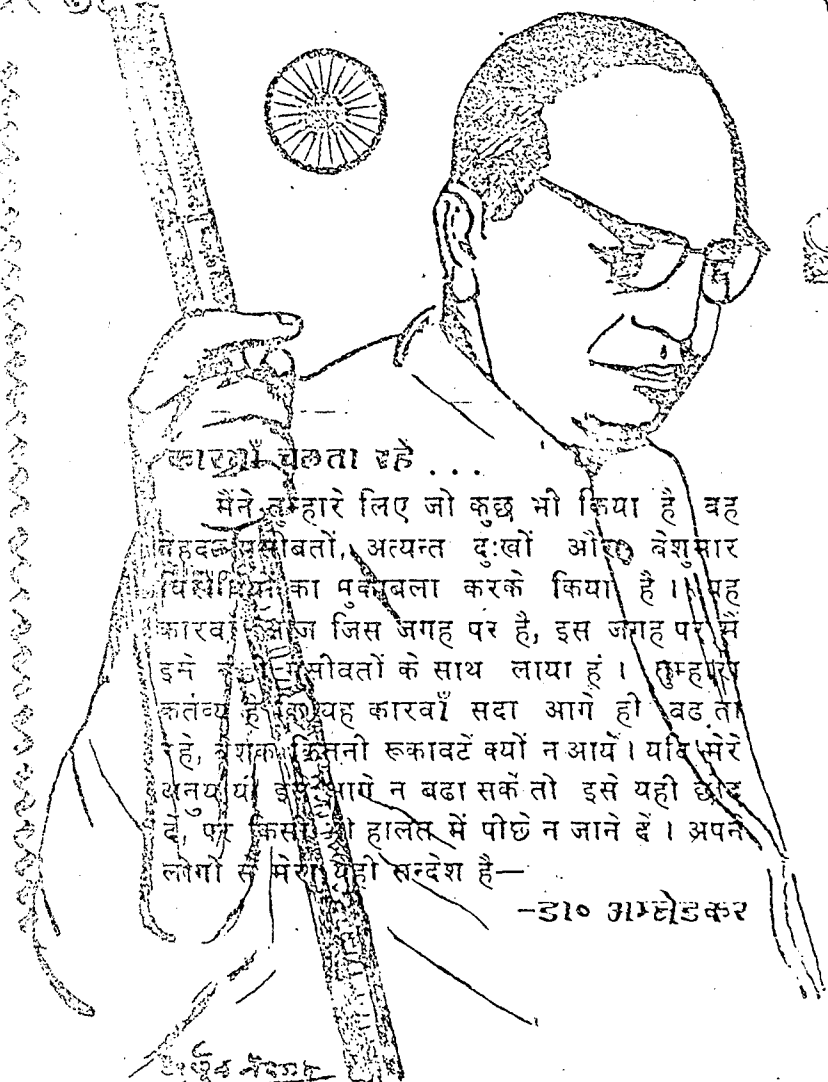 कारवाँ चलता रहे . . .
मैंने तुम्हारे लिए जो कुछ भी किया है वह
बेहद मुसीबतों, अत्यन्त दु:खों और बेशुमार
विरोधियों का मुकाबला करके किया है । यह
कारवाँ आज जिस जगह पर है, इस जगह पर मैं
इसे मुसीबतों के साथ लाया हूं । तुम्हारा
कर्तव्य है कि यह कारवाँ सदा आगे ही बढता
रहे, बेशक कितनी रूकावटें क्यों न आयें । यदि मेरे
अनुयायी इसे आगे न बढा सकें तो इसे यही छोड
दें, पर किसी भी हालत में पीछे न जाने दें । अपने
लोगों से मेरा यही सन्देश है—
–डा० अम्बेडकर